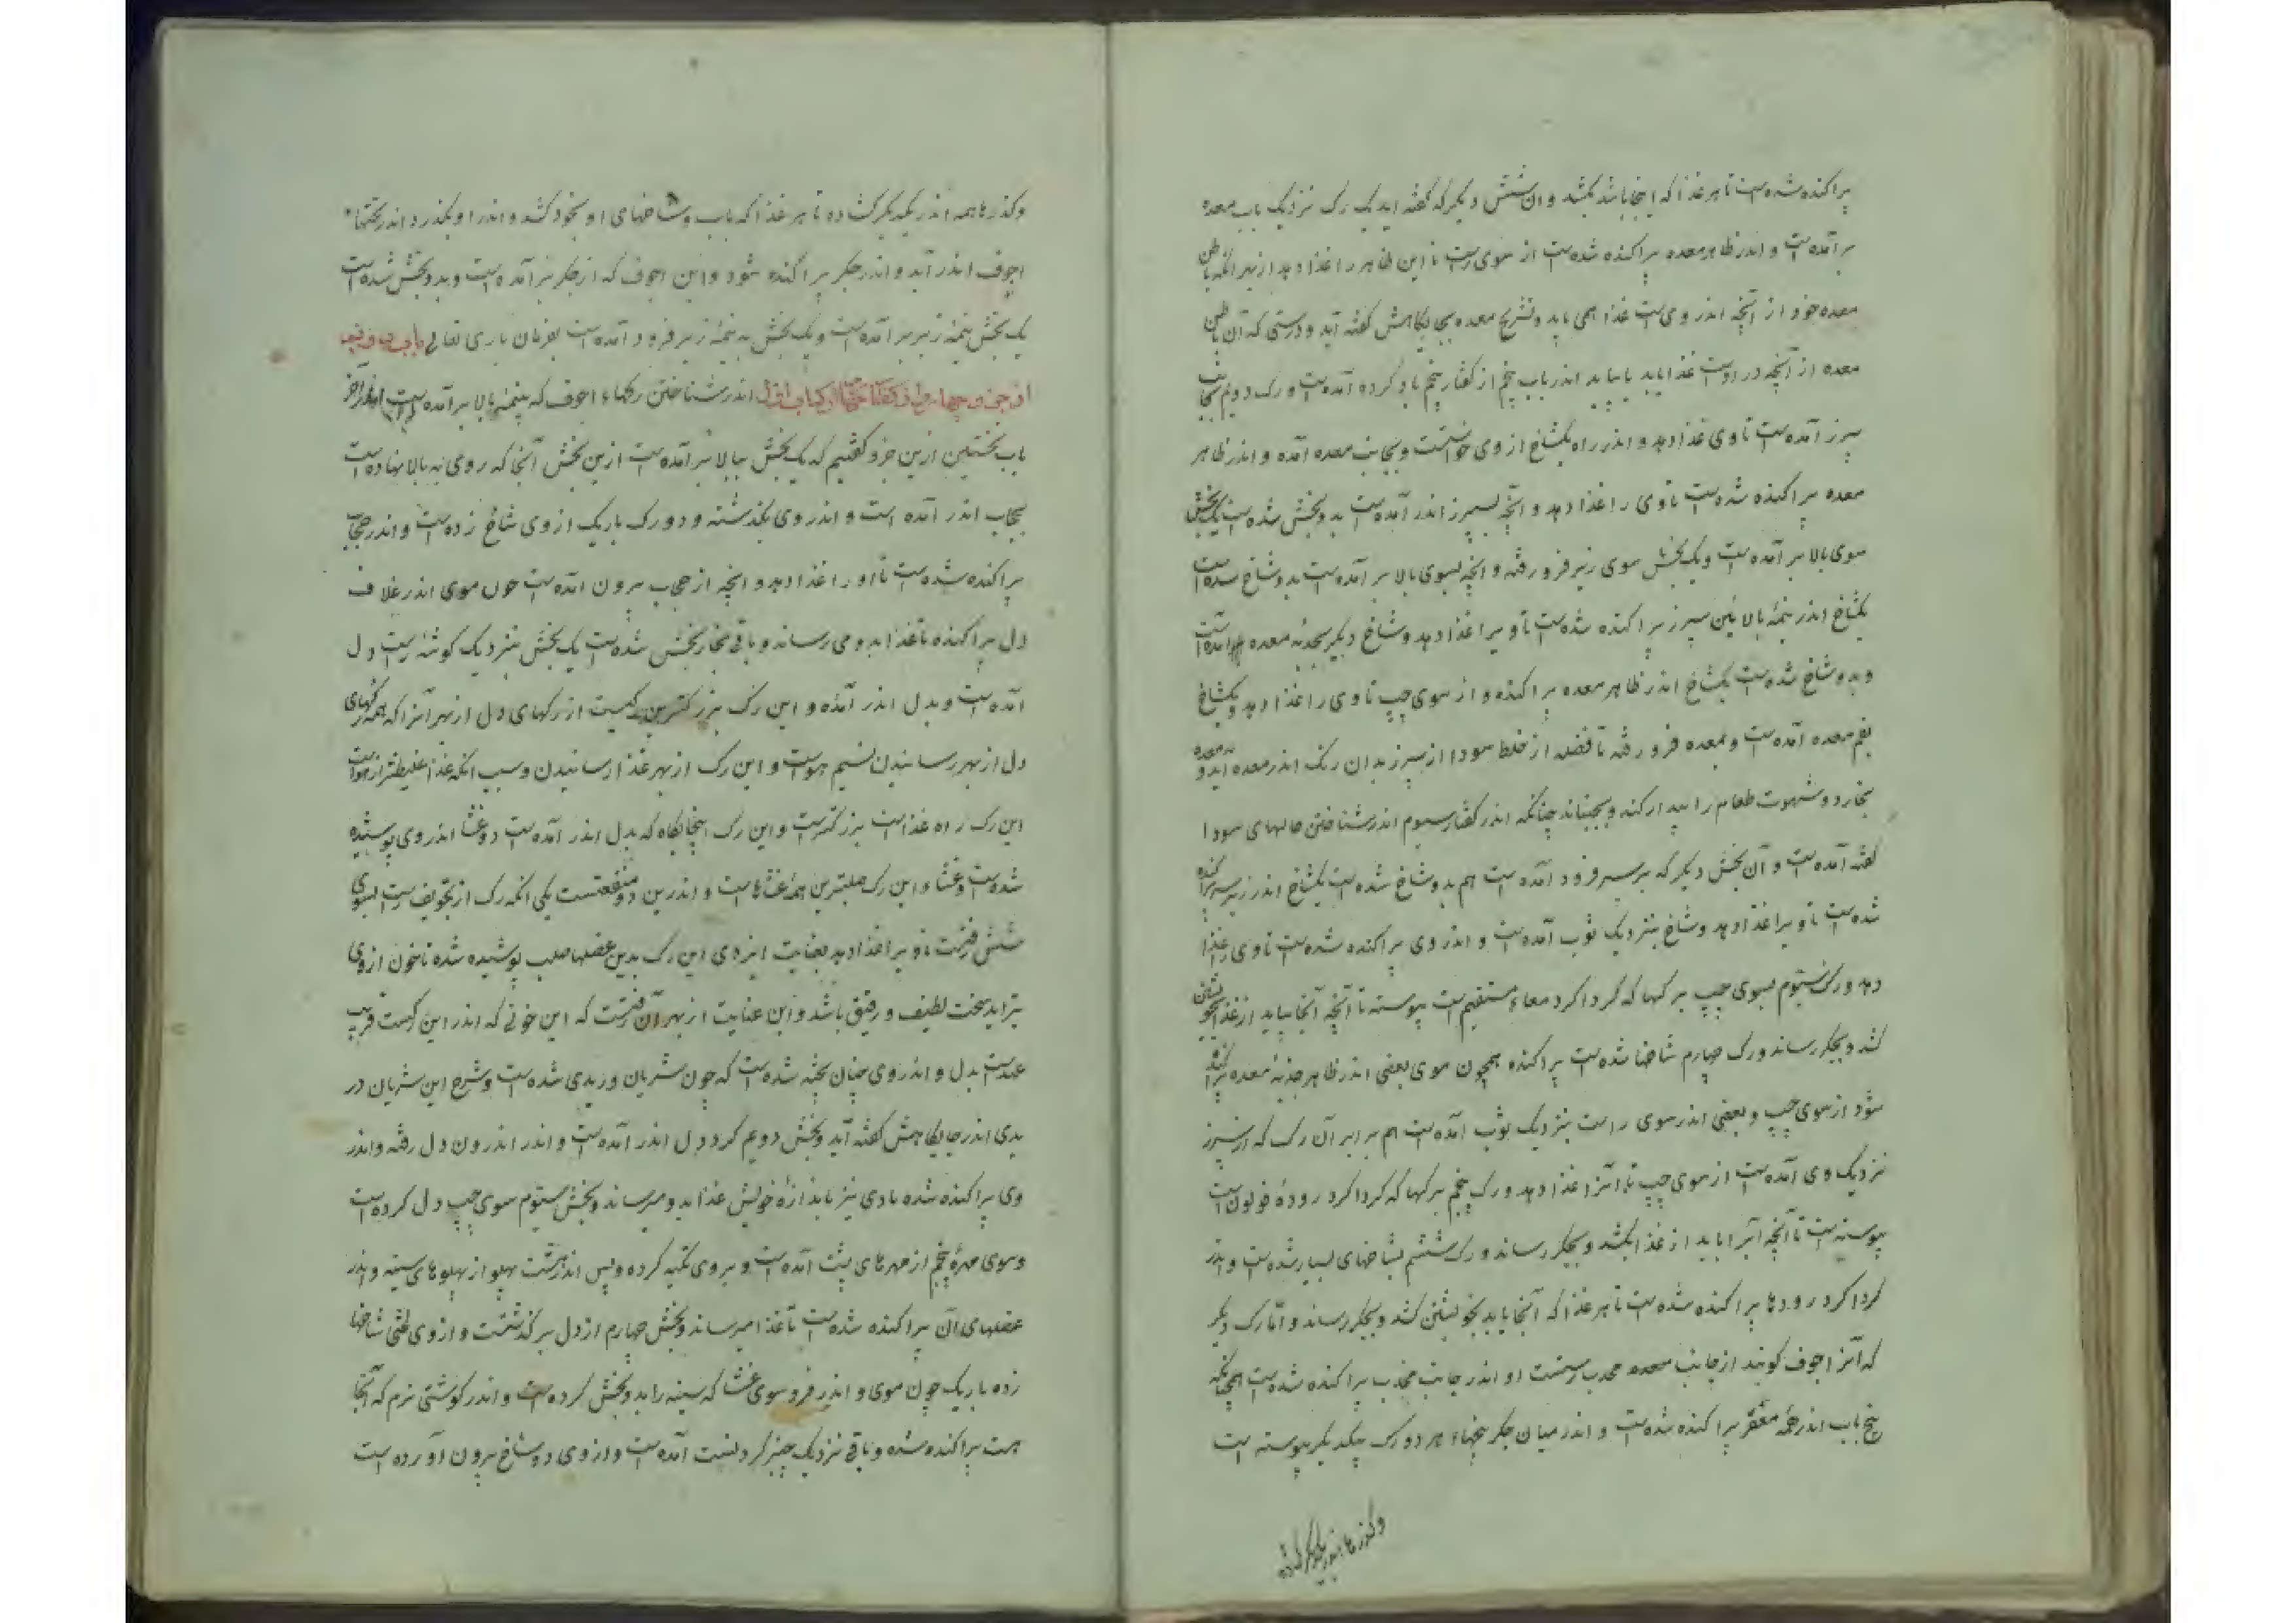 پراکنده شده است تا هر غذا که اینجا باشد بکشد و ان شش دیگر که گفته اید یک رک نزدیک باب معده
بر آمده است و اندر ظاهر معده پراکنده شده است از سوی راست تا این ظاهر را غذا دهد از بهر انکه باطن
معده خود از آنچه اندر وی است غذا همی یابد و تشریح معده بجایکاهش گفته آید و درستی که آن باطن
معده از آنچه در اوست غذا یابد یا نیابد اندر باب پنجم از گفتار پنجم یاد کرده آمده است و رک دویم بجانب
سپرز آمده است تا وی غذا دهد و اندر راه یکشاخ از وی خاستست و بجانب معده آمده و اندر ظاهر
معده پراکنده شده است تا وی را غذا دهد و آنچه بسپرز اندر آمده است بدو بخش شده است یک بخش
سوی بالا بر آمده است و یک بخش سوی زیر فرو رفته و انچه بسوی بالا بر آمده است بدو شاخ شده است
یکشاخ اندر نیمهٔ بالائین سپرز پراکنده شده است تا ویرا غذا دهد و شاخ دیگر بحدبهٔ معده آمده است
و بدو شاخ شده است یکشاخ اندر ظاهر معده پراکنده و از سوی چپ تا وی را غذا دهد و یکشاخ
بفم معده آمده است و بمعده فرو رفته تا فضله از خلط سودا از سپرز بدان رک اندر معده آید و معده
بخارد و شهوت طعام را بیدار کند و بجنباند چنانکه اندر گفتار سیوم اندر شناختن حالهای سودا
گفته آمده است و آن بخش دیگر که بزیر سپرز فرود آمده است هم بدو شاخ شده است یکشاخ اندر زیر سپرز پراکنده
شده است تا ویرا غذا دهد و شاخ بنزدیک ثوب آمده است و اندر وی پراکنده شده است تا وی را غذا
دهد و رک سیوم بسوی چپ برکها که گرداگرد معاء مستقیم است پیوسته تا آنچه آنجا بیاید از غذا بخویشتن
کشد و بجگر رساند و رک چهارم شاخها شده است پراکنده همچون موی بعضی اندر ظاهر حدبهٔ معده پراکنده
شود از سوی چپ و بعضی اندر سوی راست بنزدیک ثوب آمده است هم برابر آن رک که از سپرز
نزدیک وی آمده است از سوی چپ تا آنرا غذا دهد و رک پنجم برکها که گرداگرد رودهٔ قولون است
پیوسته است تا آنچه آنرا یابد از غذا بکشد و بجگر رساند و رک ششم بشاخهای بسیار شده است و اندر
گرداگرد رودها پراکنده شده است تا هر غذا که آنجا یابد بخویشتن کشد و بجگر رساند و اما رک دیگر
که آنرا اجوف گویند از جانب معده محدب رستست او اندر جانب محدب پراکنده شده است همچنانکه
بیخ باب اندر همه مقعر پراکنده شده است و اندر میان جگر بیخهاء هر دو رک بیکدیگر پیوسته است
وگذرها همه اندر یکدیگر گشاده
وگذرها همه اندر یکدیگر گشاده تا هر غذا که باب و شاخهای او بخود کشد و اندر او بگذرد و اندر بیخهاء
اجوف اندر آید و اندر جگر پراکنده شود و این اجوف که از جگر بر آمده است و بدو بخش شده است
یک بخش بنیمهٔ زبر بر آمده است و یک بخش به نیمهٔ زیر فرود آمده است بفرمان باری تعالی باب دوم
از جزو چهارم از گفتار از کتاب اول اندر شناختن رکهاء اجوف که بنیمهٔ بالا بر آمده است اندر آخر
باب نخستین ازین جزو گفتیم که یک بخش ببالا بر آمده است ازین بخش آنجا که روی به بالا نهاده است
بحجاب اندر آمده است و اندر وی بگذشته و دو رک باریک از وی شاخ زده است و اندر حجاب
پراکنده شده است تا او را غذا دهد و انچه از حجاب برون آمده است چون موی اندر غلاف
دل پراکنده تا غذا بدو می رساند و باقی بچهار بخش شده است یک بخش بنزدیک گوشهٔ راست دل
آمده است و بدل اندر آمده و این رک بزرکترین رکیست از رکهای دل از بهر آنرا که همه رکهای
دل از بهر رسانیدن نسیم هواست و این رک از بهر غذا رسانیدن و سبب انکه غذا غلیظتر از هواست
این رک راه غذاست بزرکترست و این رک آنجایگاه که بدل اندر آمده است دو غشا اندر وی پوشیده
شده است و غشاء این رک صلبترین همهٔ غشاهاست و اندرین دو منفعتست یکی انکه رک از تجویف راست بسوی
شش رفتست تا ویرا غذا دهد بعنایت ایزدی این رک بدین عضلها صلب پوشیده شده تا خون از وی
بتراید سخت لطیف و رقیق باشد و این عنایت از بهر آن رفتست که این خونی که اندر این رکست قریب
عهدست بدل و اندر وی چنان پخته شده است که چون شریان وریدی شده است و شرح این شریان در
یدی اندر جایگاهش گفته آید و بخش دویم گرد دل اندر آمده است و اندر اندرون دل رفته و اندر
وی پراکنده شده تا وی نیز باندازهٔ خویش غذا بدو میرساند و بخش سیوم سوی چپ دل کرده است
و سوی مهرهٔ پنجم از مهرهای پشت آمده است و بروی تکیه کرده و پس اندر هشت پهلو از پهلوهای سینه و اندر
عضلهای آن پراکنده شده است تا غذا میرساند و بخش چهارم از دل برگذشتست و از وی لختی شاخها
زده باریک چون موی و اندر فرو سوی غشا که سینه را بدو بخش کرده است و اندر گوشتی نرم که آنجا
هست پراکنده شده و باقی نزدیک چنبر گردنست آمده است و از وی دو شاخ برون آورده است